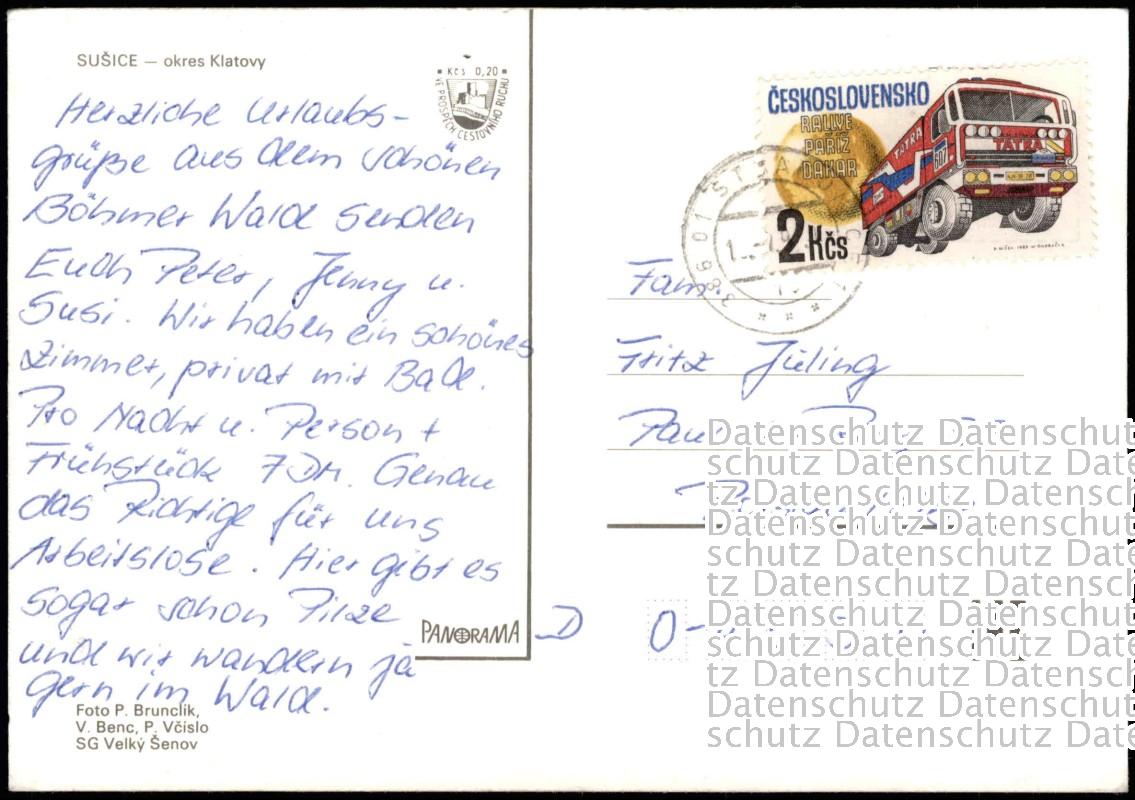 SUŠICE — okres Klatovy
Kčs 0,20
VE PROSPĚCH CESTOVNÍHO RUCHU
Herzliche Urlaubs-
grüße aus dem schönen
Böhmer Wald senden
Euch Peter, Jenny u.
Susi. Wir haben ein schönes
Zimmer, privat mit Bad.
Pro Nacht u. Person +
Frühstück 7 DM. Genau
das Richtige für uns
Arbeitslose. Hier gibt es
sogar schon Pilze
und wir wandern ja
gern im Wald.
Foto P. Brunclík,
V. Benc, P. Včíslo
SG Velký Šenov
PANORAMA
ČESKOSLOVENSKO
RALLYE
PAŘÍŽ
DAKAR
TATRA
607
TATRA
2 Kčs
386 01
Fam.
Fritz Jüling
D O-
Datenschutz Datenschut
schutz Datenschutz Date
tz Datenschutz Datensch
Datenschutz Datenschut
schutz Datenschutz Date
tz Datenschutz Datensch
Datenschutz Datenschut
schutz Datenschutz Date
tz Datenschutz Datensch
Datenschutz Datenschut
schutz Datenschutz Date